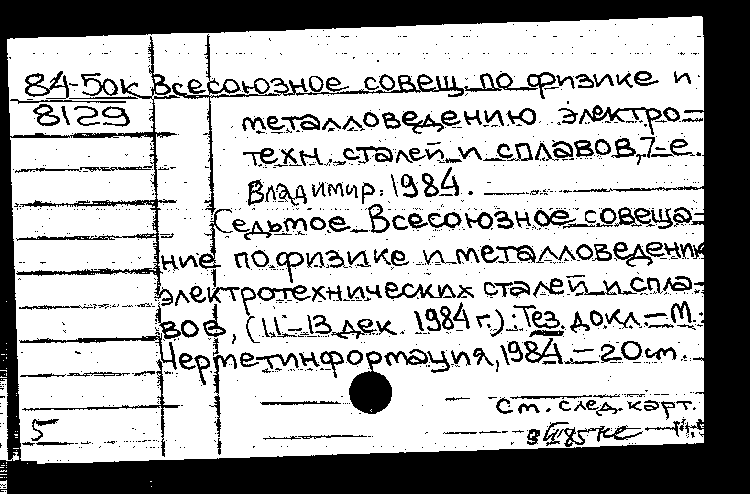 84-50к Всесоюзное совещ. по физике и
8129 металловедению электро-
техн. сталей и сплавов, 7-е.
Владимир. 1984.
Седьмое Всесоюзное совеща-
ние по физике и металловедению
электротехнических сталей и спла-
вов, (11-13 дек. 1984 г.): Тез. докл. - М.:
Черметинформация, 1984. - 20 см.
См. след. карт.
5